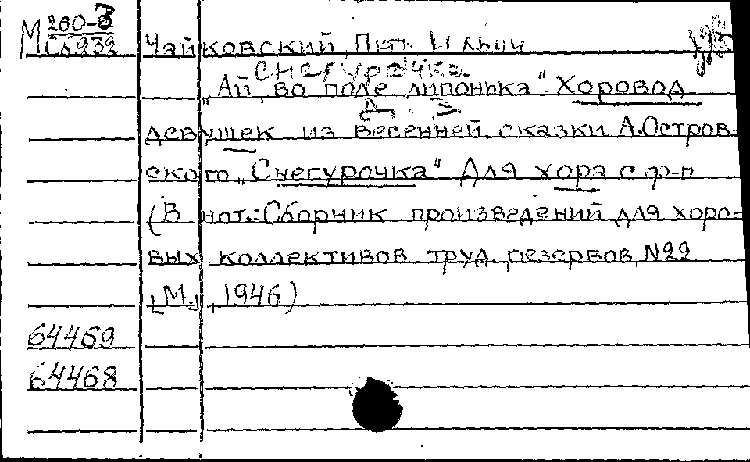 М 260-3
Сб939 Чайковский, Петр Ильич
Снегурочка.
„Ай, во поле липонька“. Хоровод
девушек из весенней сказки А.Остров-
ского „Снегурочка“ Для хора с ф-п
(В нот.: Сборник произведений для хоро-
вых коллективов труд. резервов, №22
[М.], 1946)
64469
64468